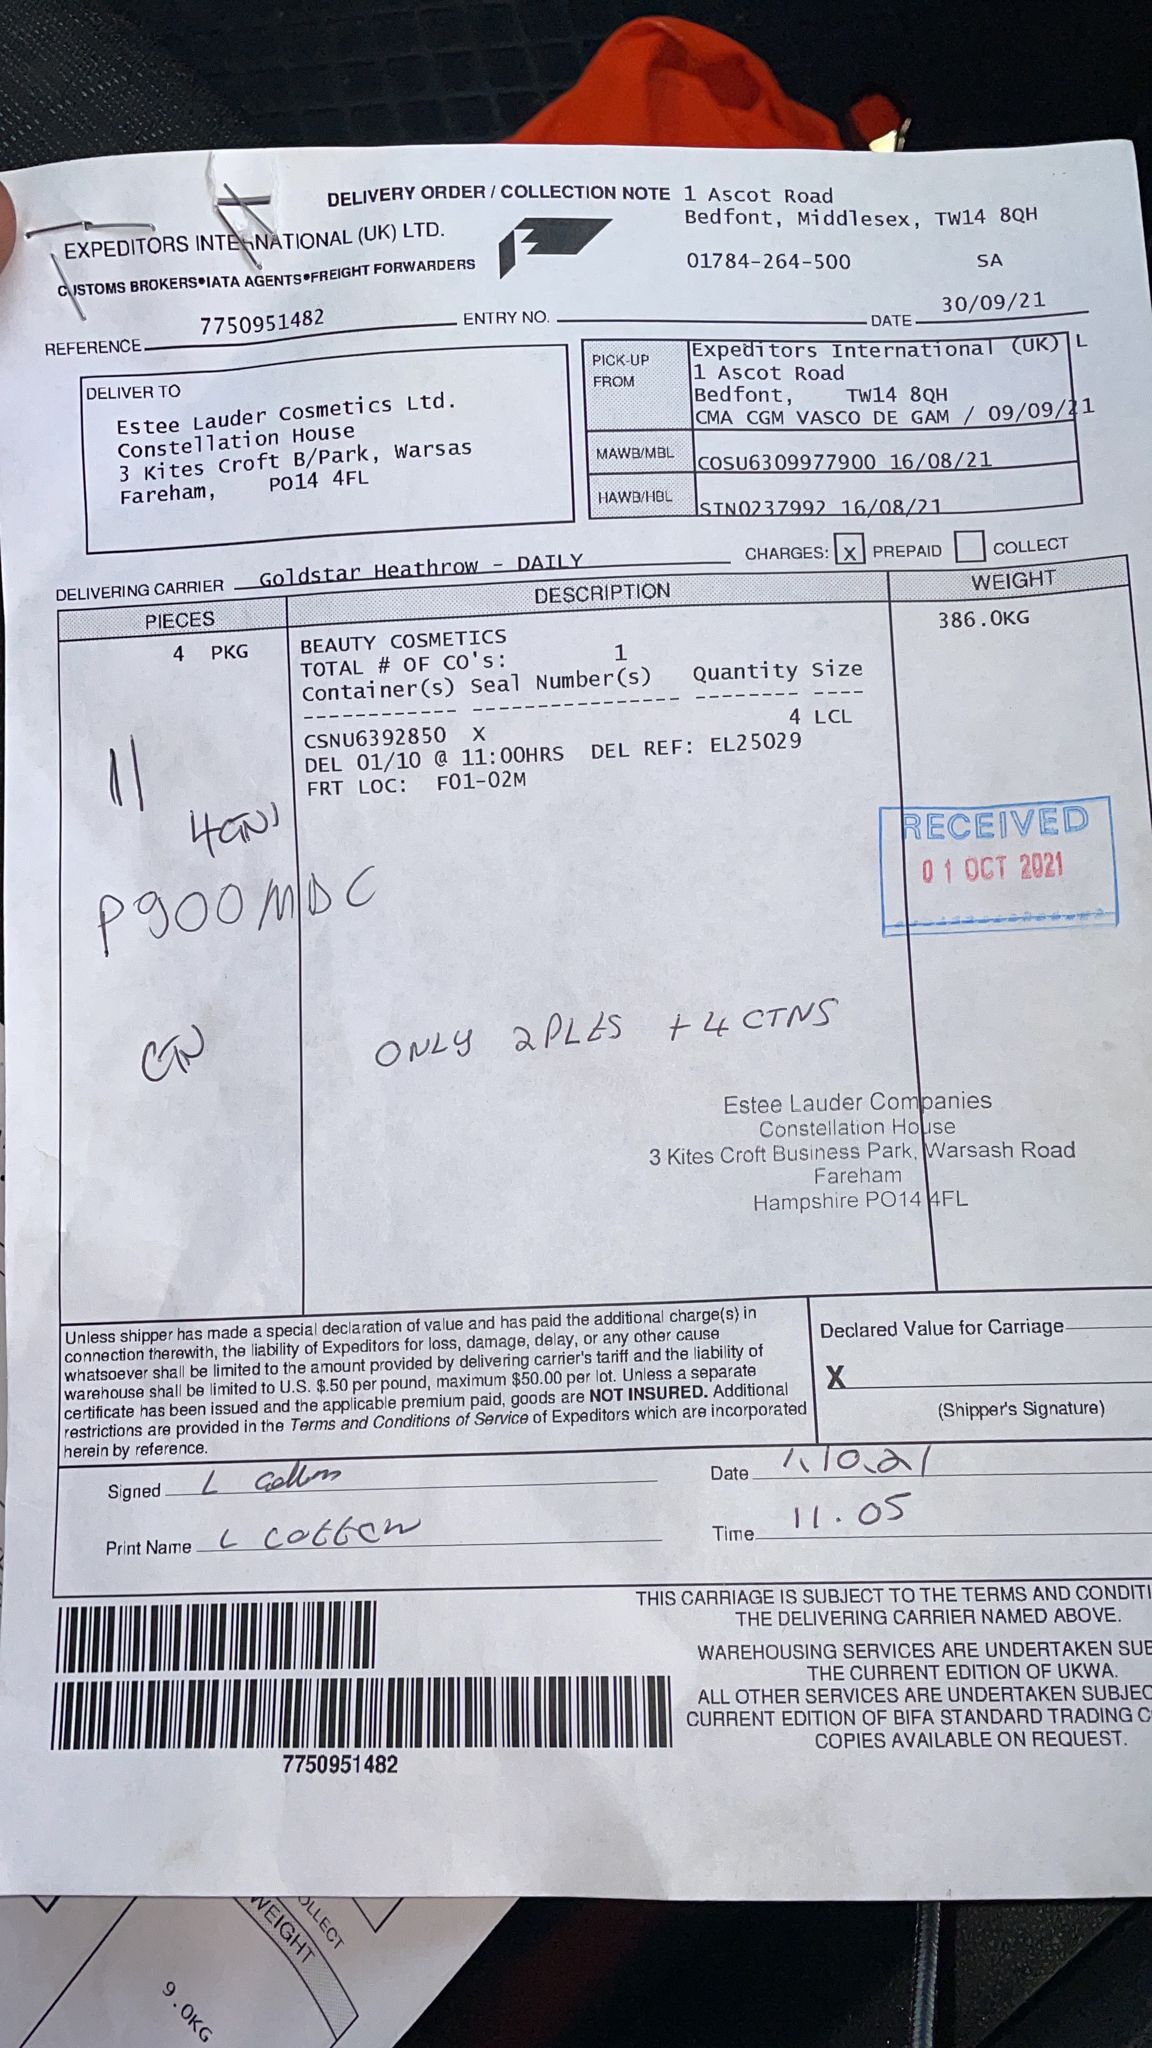 DELIVERY ORDER / COLLECTION NOTE 1 Ascot Road
Bedfont, Middlesex, TW14 8QH
EXPEDITORS INTERNATIONAL (UK) LTD.
CUSTOMS BROKERS•IATA AGENTS•FREIGHT FORWARDERS
01784-264-500 SA
REFERENCE 7750951482 ENTRY NO. DATE 30/09/21
DELIVER TO
Estee Lauder Cosmetics Ltd.
Constellation House
3 Kites Croft B/Park, Warsas
Fareham, PO14 4FL
PICK-UP FROM
Expeditors International (UK) L
1 Ascot Road
Bedfont, TW14 8QH
CMA CGM VASCO DE GAM / 09/09/21
MAWB/MBL COSU6309977900 16/08/21
HAWB/HBL STN0237992 16/08/21
DELIVERING CARRIER Goldstar Heathrow - DAILY CHARGES: X PREPAID COLLECT
PIECES DESCRIPTION WEIGHT
4 PKG BEAUTY COSMETICS 386.0KG
TOTAL # OF CO's: 1
Container(s) Seal Number(s) Quantity Size
------------ ----------------- -------- ----
CSNU6392850 X 4 LCL
DEL 01/10 @ 11:00HRS DEL REF: EL25029
FRT LOC: F01-02M
RECEIVED
01 OCT 2021
P900MDC
CTN
ONLY 2PLTS + 4 CTNS
Estee Lauder Companies
Constellation House
3 Kites Croft Business Park, Warsash Road
Fareham
Hampshire PO14 4FL
Unless shipper has made a special declaration of value and has paid the additional charge(s) in
connection therewith, the liability of Expeditors for loss, damage, delay, or any other cause
whatsoever shall be limited to the amount provided by delivering carrier's tariff and the liability of
warehouse shall be limited to U.S. $.50 per pound, maximum $50.00 per lot. Unless a separate
certificate has been issued and the applicable premium paid, goods are NOT INSURED. Additional
restrictions are provided in the Terms and Conditions of Service of Expeditors which are incorporated
herein by reference.
Declared Value for Carriage
X
(Shipper's Signature)
Signed L
Date 1.10.21
Print Name L
Time 11.05
THIS CARRIAGE IS SUBJECT TO THE TERMS AND CONDITI
THE DELIVERING CARRIER NAMED ABOVE.
WAREHOUSING SERVICES ARE UNDERTAKEN SUB
THE CURRENT EDITION OF UKWA.
ALL OTHER SERVICES ARE UNDERTAKEN SUBJEC
CURRENT EDITION OF BIFA STANDARD TRADING C
COPIES AVAILABLE ON REQUEST.
7750951482
OLLECT
WEIGHT
9.0KG